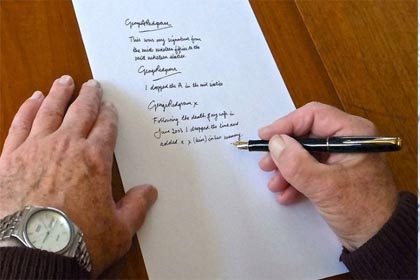 George A Pedgram
This was my signature from
the mid nineteen fifties to the
mid nineteen sixties
George Pedgram
I dropped the A in the mid sixties
George Pedgram x
Following the death of my wife in
June 2003 I dropped the line and
added a x (kiss) in her memory.